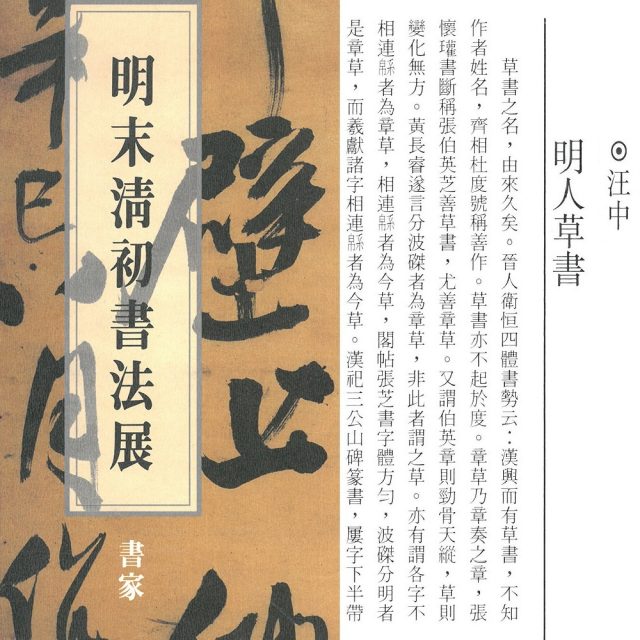 明末清初書法展
書家
壁上
⊙汪中
明人草書
草書之名，由來久矣。晉人衛恒四體書勢云：漢興而有草書，不知
作者姓名，齊相杜度號稱善作。草書亦不起於度。章草乃章奏之章，張
懷瓘書斷稱張伯英芝善草書，尤善章草。又謂伯英章則勁骨天縱，草則
變化無方。黃長睿遂言分波磔者為章草，非此者謂之草。亦有謂各字不
相連緜者為章草，相連緜者為今草，閣帖張芝書字體方勻，波磔分明者
是章草，而羲獻諸字相連緜者為今草。漢祀三公山碑篆書，屢字下半帶